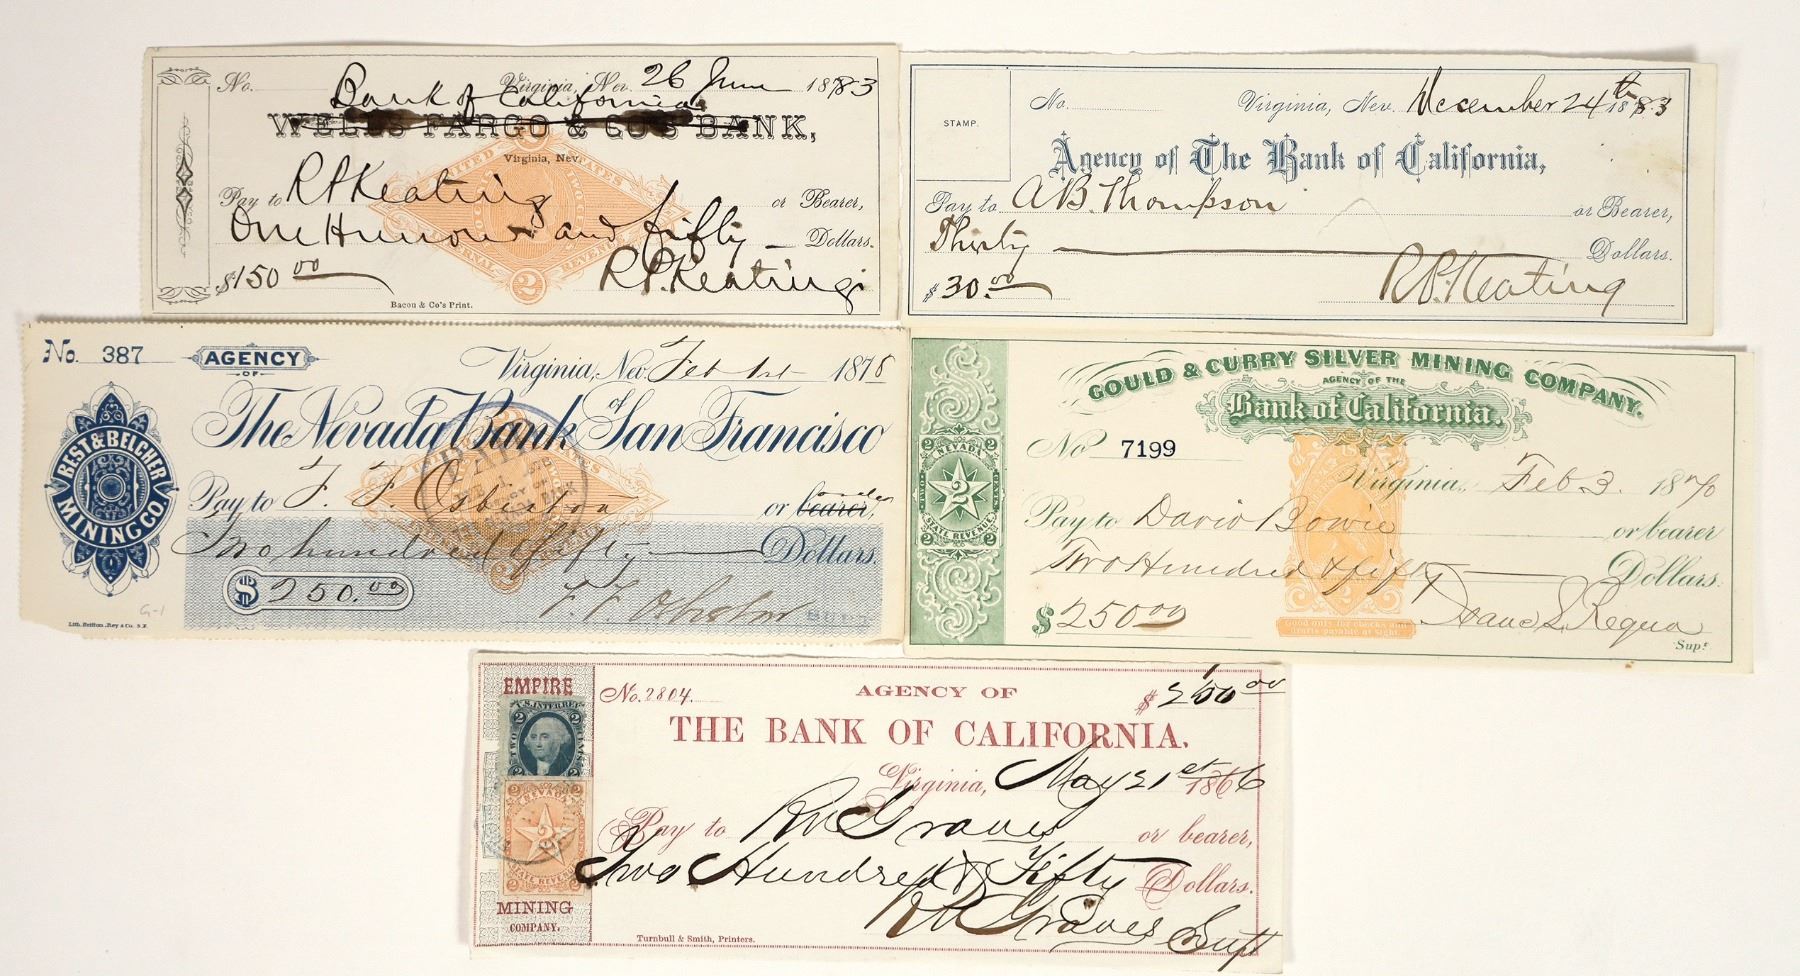 No. Virginia, Nev. 26 June 1883
Bank of California
WELLS FARGO & CO'S BANK,
Virginia, Nev.
UNITED STATES
Pay to R P Keating or Bearer,
One Hundred and fifty Dollars.
$150 00 R.P. Keating
INTERNAL REVENUE
2
Bacon & Co's Print.
STAMP.
No. Virginia, Nev. December 24th 1883
Agency of The Bank of California,
Pay to A B. Thompson or Bearer,
Thirty Dollars.
$30.00 R.P. Keating
No. 387 AGENCY OF Virginia, Nev. Feb 1st 1878
The Nevada Bank of San Francisco
BEST & BELCHER MINING CO.
Pay to F. F. Osbiston or bearer, order
Two hundred & fifty Dollars.
$ 250.00 F. F. Osbiston SUPT
G-1
Lith. Britton, Rey & Co. S.F.
GOULD & CURRY SILVER MINING COMPANY.
AGENCY OF THE
Bank of California.
No 7199
Virginia, Feb 3. 1870
NEVADA
2
TWO CENTS
STATE REVENUE
Pay to David Bowie or bearer
Two Hundred & fifty Dollars.
$250 00 Isaac L. Requa
Supt.
Good only for checks and
drafts payable at sight.
EMPIRE
No. 2804. AGENCY OF $250 00
THE BANK OF CALIFORNIA.
U.S. INTER. REV.
TWO CENTS
Virginia, May 21st 1866
NEVADA
2
STATE REVENUE
Pay to R M Graves or bearer,
Two Hundred & Fifty Dollars.
R M Graves Supt
MINING
COMPANY.
Turnbull & Smith, Printers.